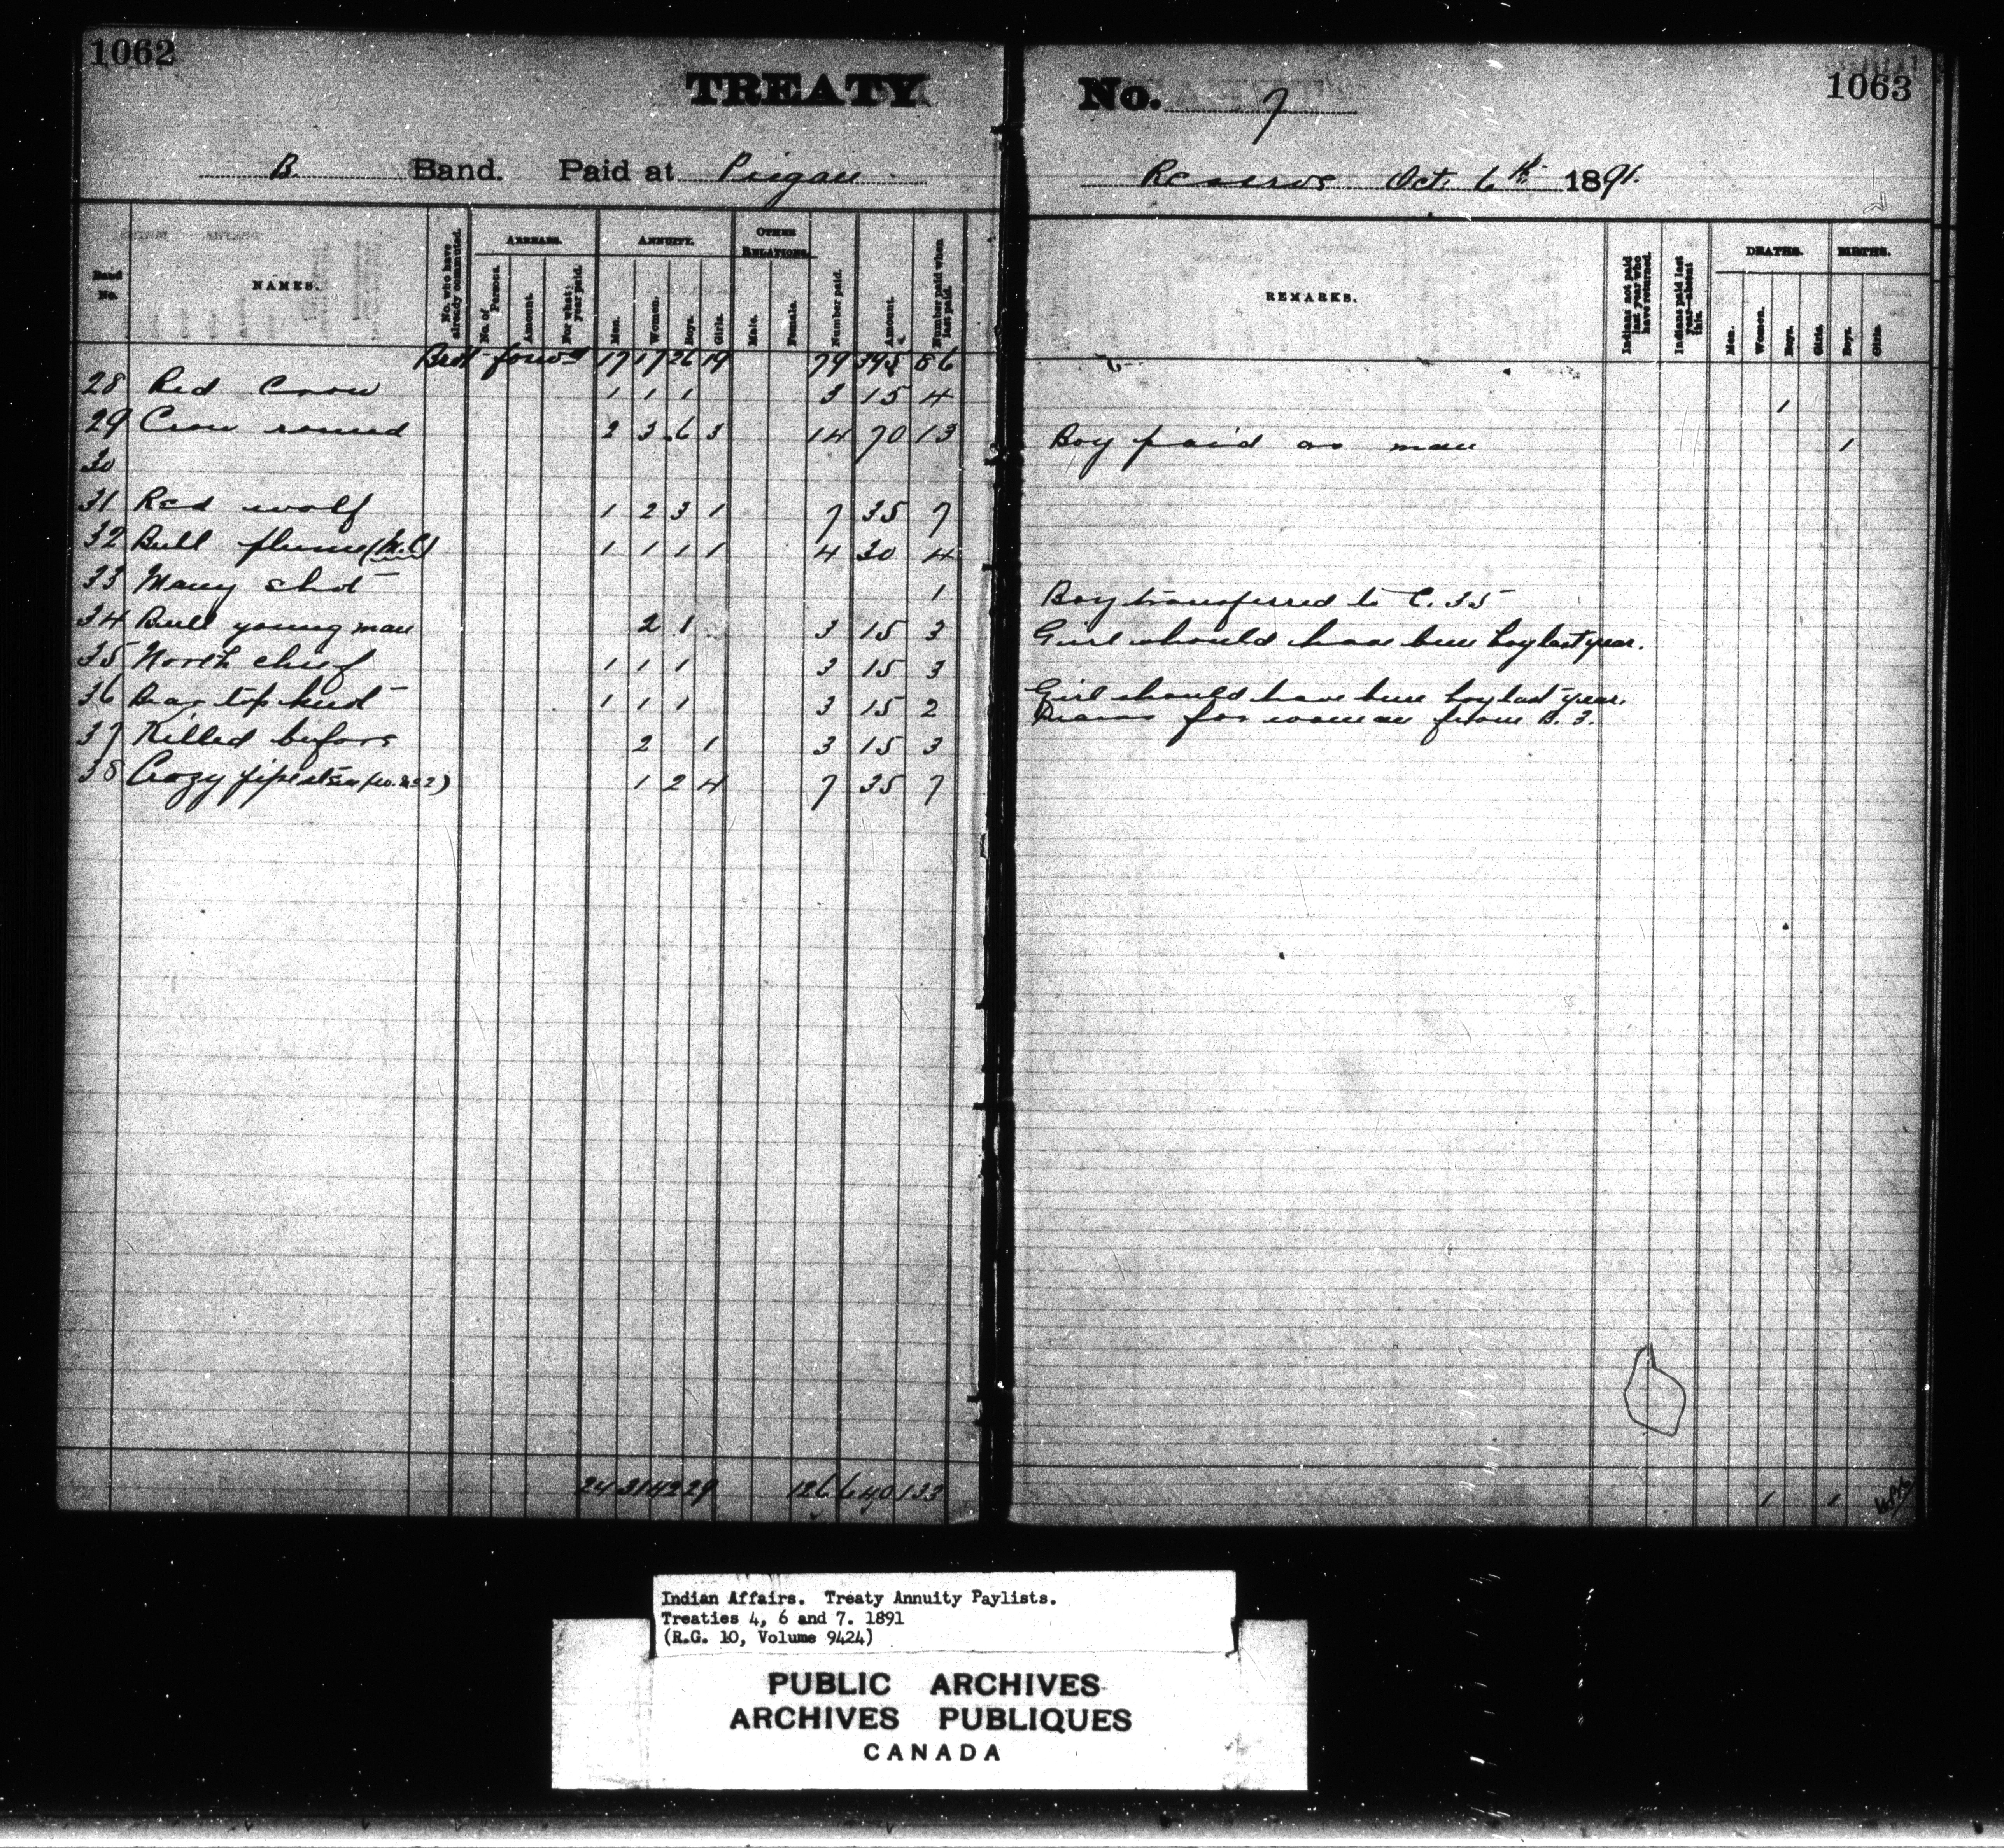 1062
TREATY
B Band. Paid at Piegan
Band No. NAMES. No. who have already commuted. ARREARS. No. of Persons. Amount. For what year paid. ANNUITY. Men. Women. Boys. Girls. OTHER RELATIONS. Male. Female. Number paid. Amount. Number paid when last paid.
Brot forwd 17 17 26 19 79 395 86
28 Red Crow 1 1 1 3 15 4
29 Crow round 2 3 6 3 14 70 13
30
31 Red wolf 1 2 3 1 7 35 7
32 Bull plume (M.C) 1 1 1 1 4 30 4
33 Many shot 1
34 Bull young man 2 1 3 15 3
35 North chief 1 1 1 3 15 3
36 1 1 1 3 15 2
37 Killed before 2 1 3 15 3
38 Crazy 1 2 4 7 35 7
24 31 42 29 126 640 133
No. 7
1063
Reserve Oct. 6th 1891.
REMARKS. Indians not paid last year who have returned. Indians paid last year—absent this. DEATHS. Men. Women. Boys. Girls. BIRTHS. Boys. Girls.
1
Boy paid as man 1
Boy transferred to C. 35
Girl should have been boy last year.
Girl should have been boy last year.
Draws for woman from B. 3.
1 1
Indian Affairs. Treaty Annuity Paylists.
Treaties 4, 6 and 7. 1891
(R.G. 10, Volume 9424)
PUBLIC ARCHIVES
ARCHIVES PUBLIQUES
CANADA